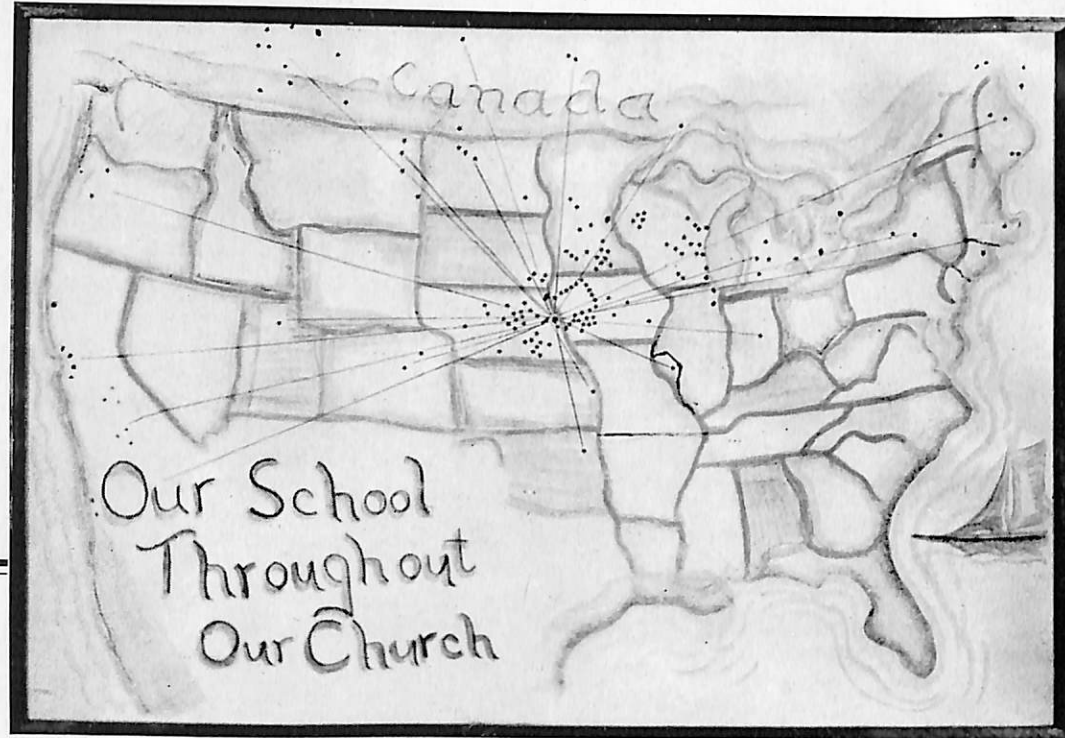 Canada
Our School
Throughout
Our Church